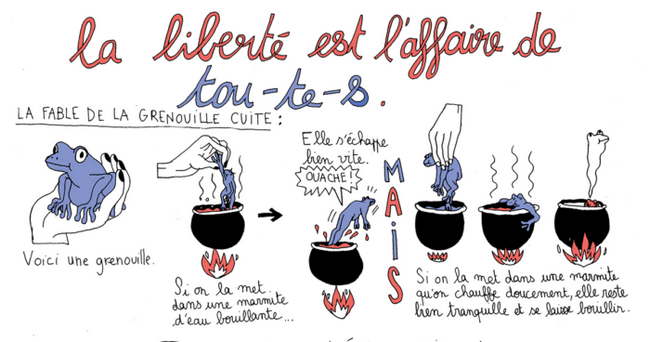 la liberté est l'affaire de
tou-te-s.
LA FABLE DE LA GRENOUILLE CUITE :
Voici une grenouille.
Si on la met
dans une marmite
d'eau bouillante...
Elle s'échappe
bien vite.
OUACHE!
MAIS
Si on la met dans une marmite
qu'on chauffe doucement, elle reste
bien tranquille et se laisse bouillir.